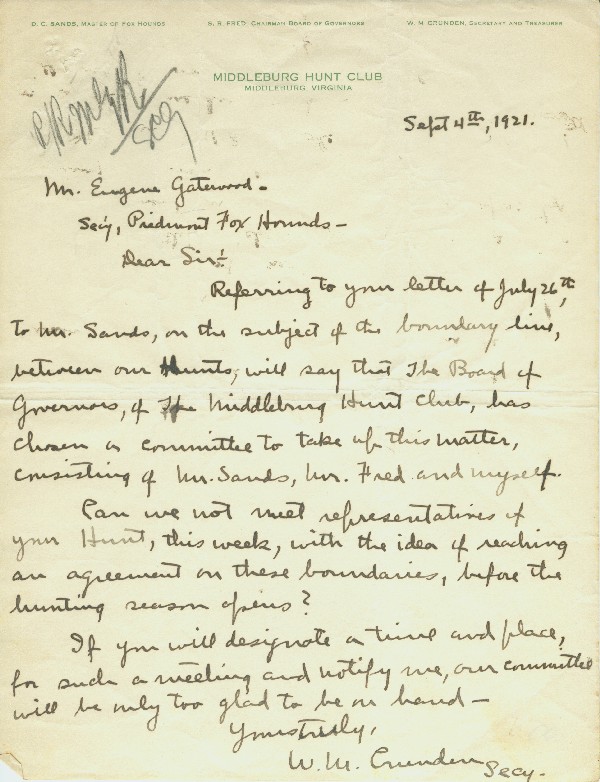 D. C. SANDS, MASTER OF FOX HOUNDS
S. R. FRED, CHAIRMAN BOARD OF GOVERNORS
W. M. CRUNDEN, SECRETARY AND TREASURER
MIDDLEBURG HUNT CLUB
MIDDLEBURG, VIRGINIA
Sept 4th, 1921.
Mr. Eugene Gatewood-
Sec'y, Piedmont Fox Hounds-
Dear Sir:-
Referring to your letter of July 26th,
to Mr. Sands, on the subject of the boundary line,
between our Hunts, will say that The Board of
Governors, of The Middleburg Hunt Club, has
chosen a committee to take up this matter,
consisting of Mr. Sands, Mr. Fred and myself.
Can we not meet representatives of
your Hunt, this week, with the idea of reaching
an agreement on these boundaries, before the
hunting season opens?
If you will designate a time and place,
for such a meeting and notify me, our committee
will be only too glad to be on hand-
Yours truly,
W. M. Crunden Secy.